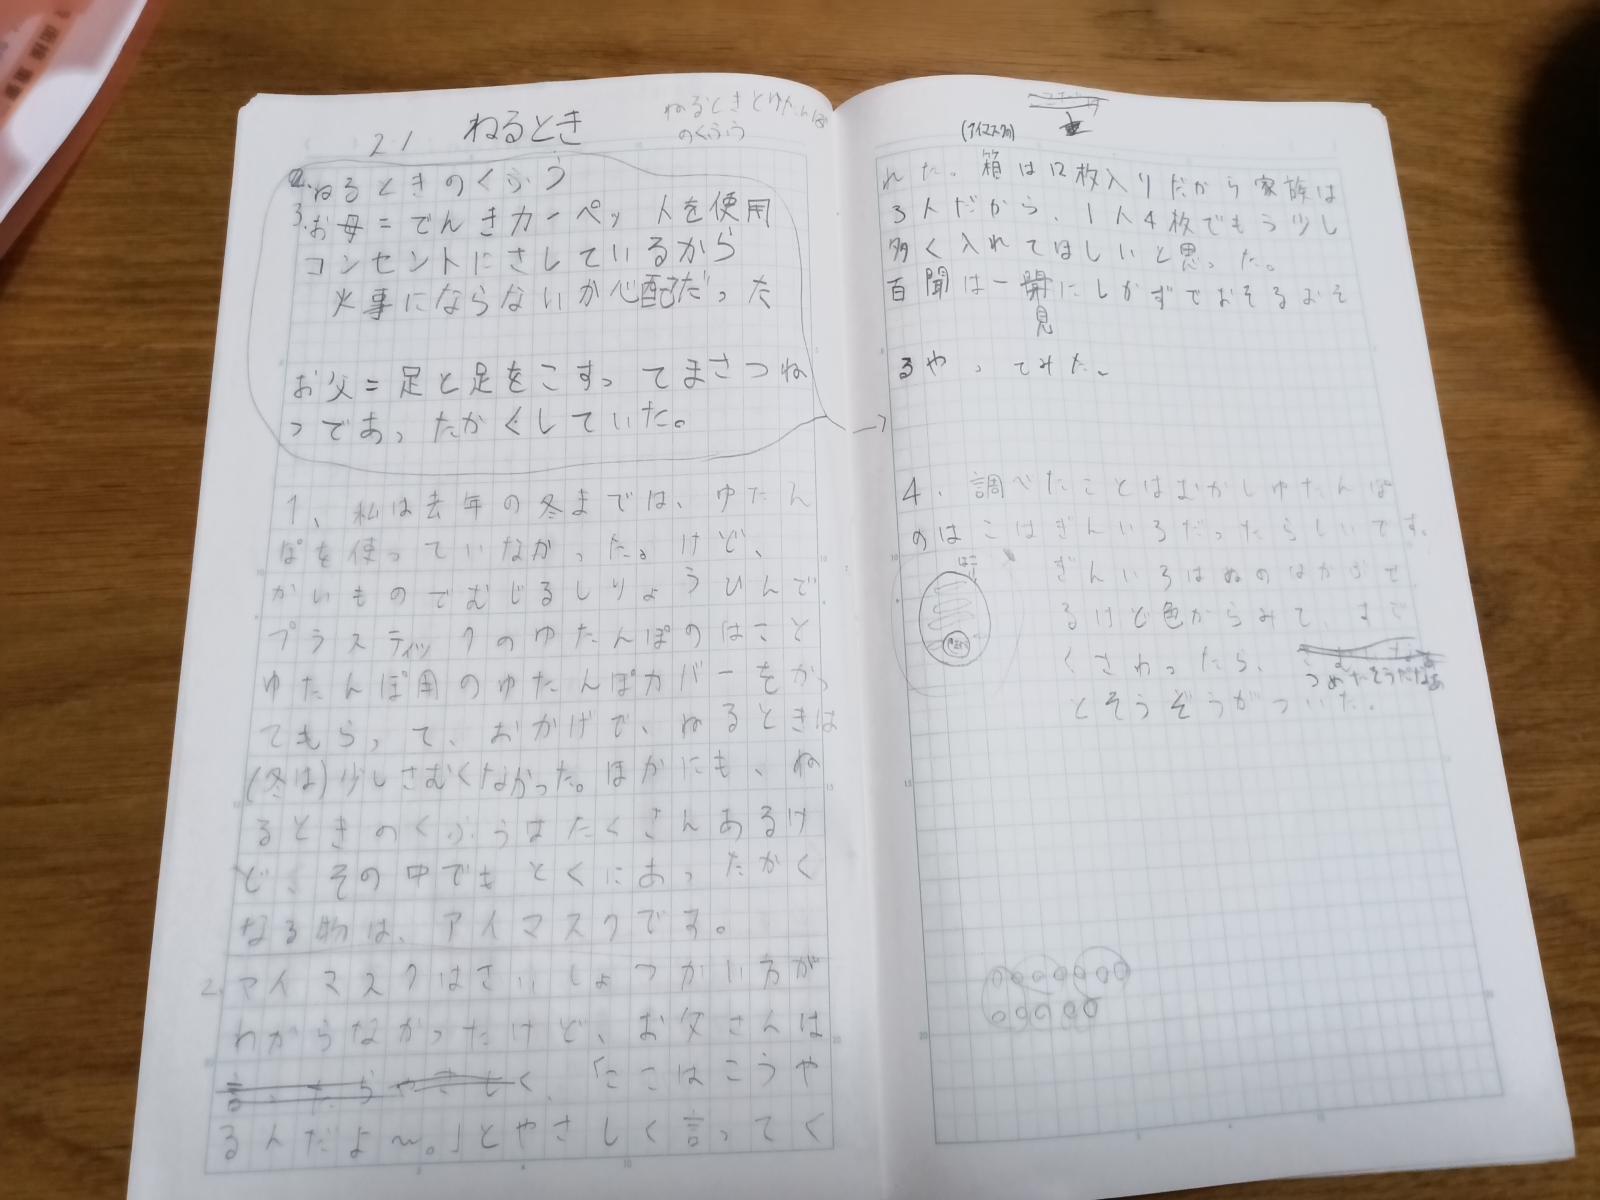 2.1 ねるとき
ねるときとゆたんぽ
のくふう
2.ねるときのくふう
3.お母=でんきカーペット を使用
コンセントにさしているから
火事にならないか心配だった
お父=足と足をこすってまさつね
つであったかくしていた。
1、私は去年の冬までは、ゆたん
ぽを使っていなかった。けど、
かいものでむじるしりょうひんで
プラスティックのゆたんぽのはこと
ゆたんぽ用のゆたんぽカバーをかっ
てもらって、おかげで、ねるときは
(冬は)少しさむくなかった。ほかにも、ね
るときのくふうはたくさんあるけ
ど、その中でもとくにあったかく
なる物は、アイマスクです。
2.アイマスクはさいしょつかい方が
わからなかったけど、お父さんは
「ここはこうや
るんだよ~。」とやさしく言ってく
(アイマスク)
れた。箱は12枚入りだから家族は
3人だから、1人4枚でもう少し
多く入れてほしいと思った。
百聞は一
見
にしかずでおそるおそ
るやってみた。
4.調べたことはむかしゆたんぽ
のはこはぎんいろだったらしいです。
ぎんいろはぬのはかぶせ
るけど色からみて、まで
くさわったら、
つめたそうだなぁ
とそうぞうがついた。